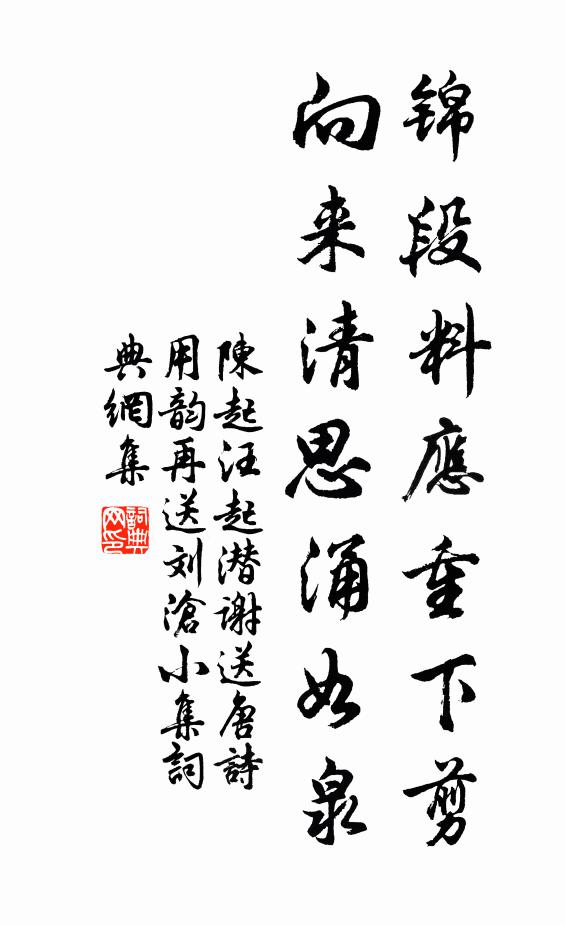 锦段料應重下剪
向来清思涌如泉
陳起汪起潜谢送唐詩
用韵再送刘滄小集詞
典網集
詞典网印